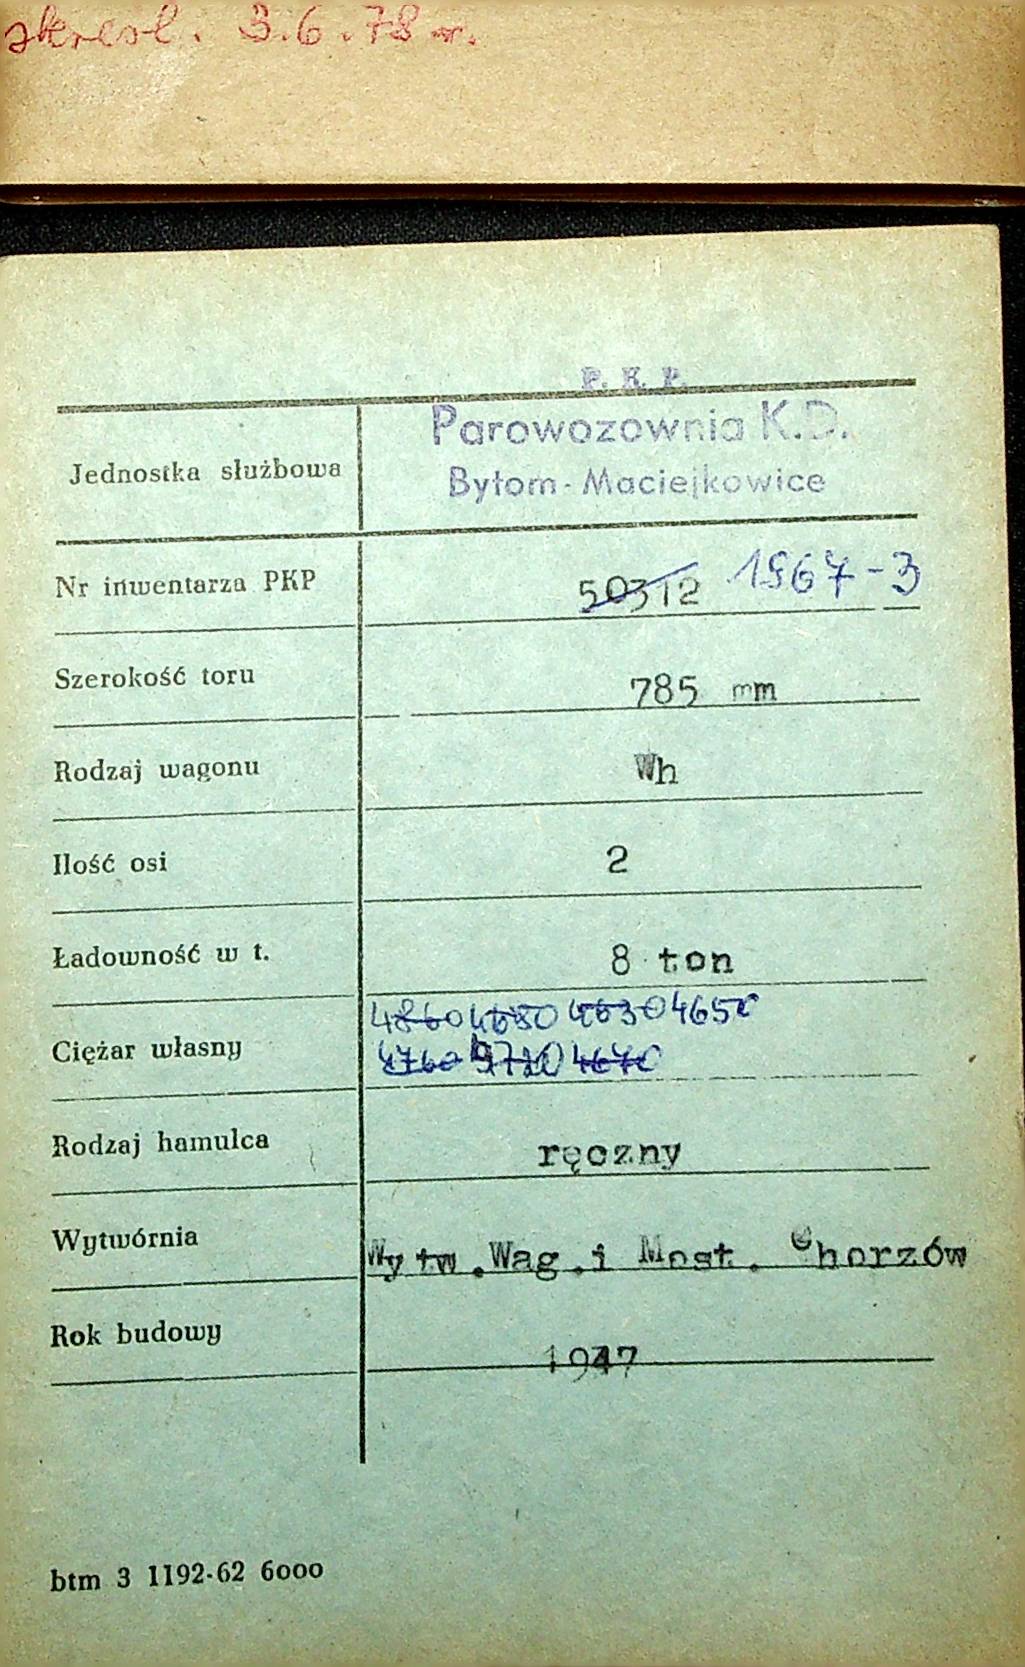 skreśl. 3.6.78 r.
P. K. P.
Parowozownia K.D.
Bytom-Maciejkowice
Jednostka służbowa
Nr inwentarza PKP 50312 1967-3
Szerokość toru 785 mm
Rodzaj wagonu Wh
Ilość osi 2
Ładowność w t. 8 ton
4860 4680 4630 4650
Ciężar własny
4760 4710 4640
Rodzaj hamulca ręczny
Wytwórnia Wytw.Wag.i Most. Chorzów
Rok budowy 1947
btm 3 1192-62 6000